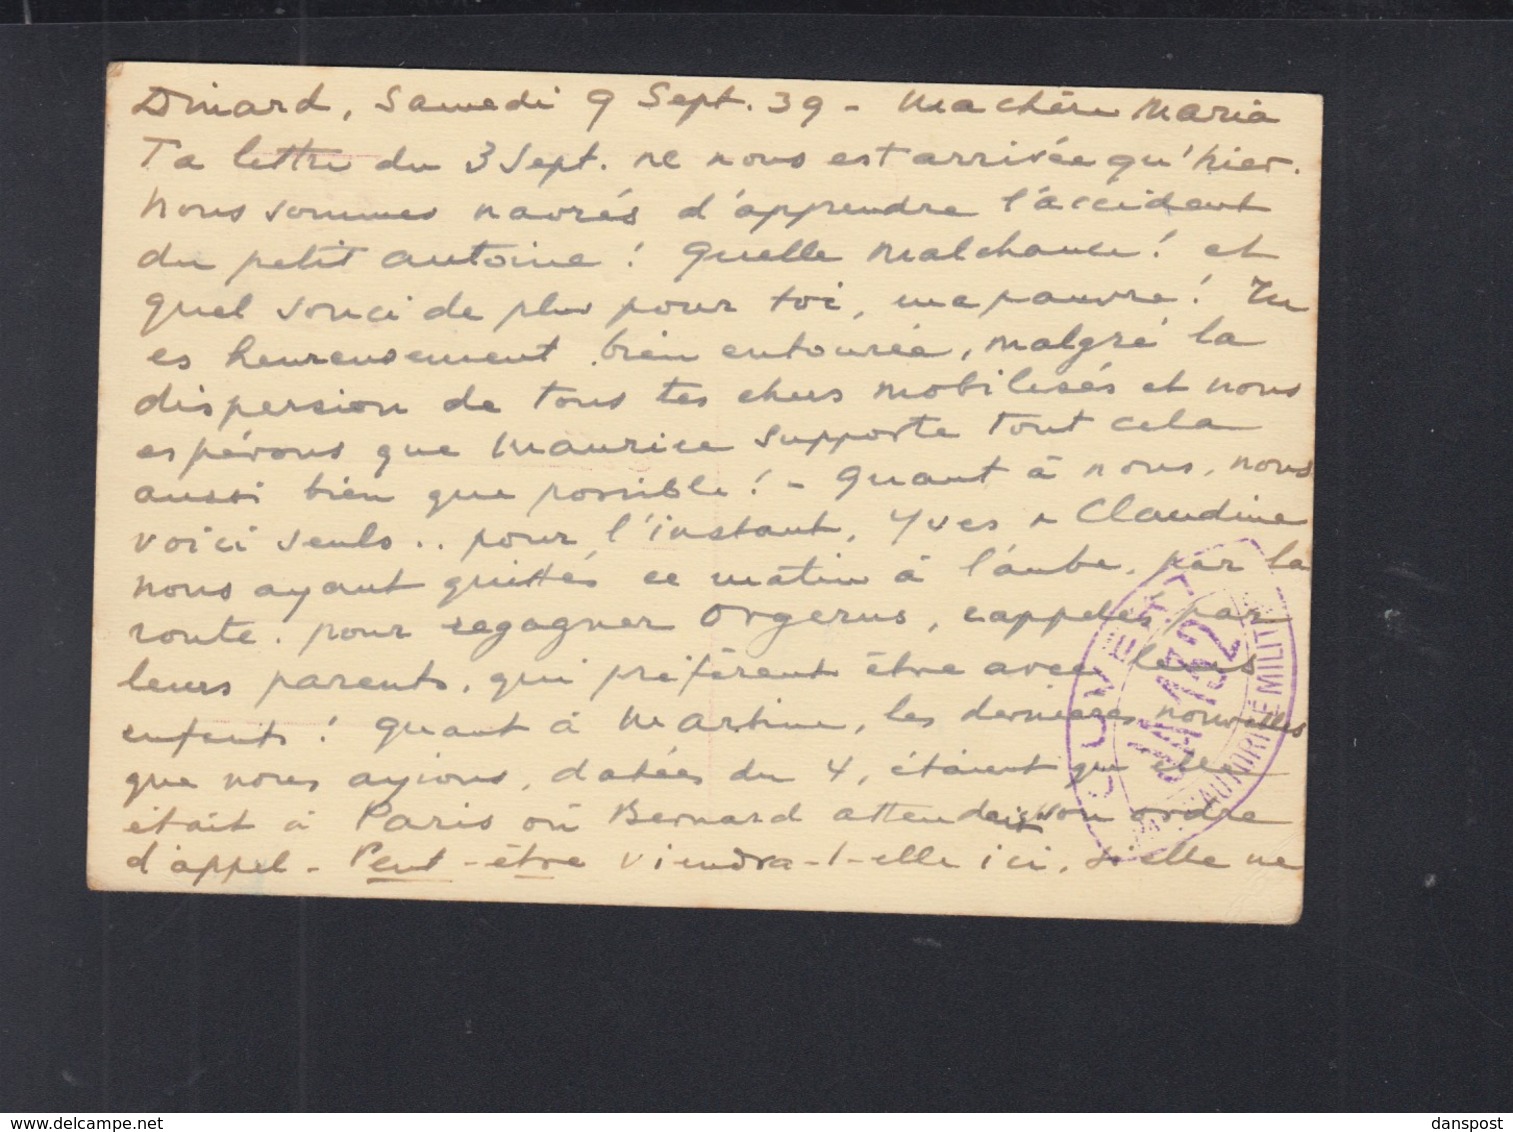 Dinard, Samedi 9 Sept. 39 - Ma chère Maria
Ta lettre du 3 Sept. ne nous est arrivée qu'hier.
Nous sommes navrés d'apprendre l'accident
du petit Antoine ! Quelle malchance ! et
quel souci de plus pour toi, ma pauvre ! Tu
es heureusement bien entourée, malgré la
dispersion de tous tes chers mobilisés et nous
espérons que Maurice supporte tout cela
aussi bien que possible ! - Quant à nous, nous
voici seuls .. pour l'instant, Yves & Claudine
nous ayant quittés ce matin à l'aube, par la
route. pour regagner Orgerus, rappelés par
leurs parents, qui préfèrent être avec leurs
enfants ! Quant à Martine, les dernières nouvelles
que nous ayions, datées du 4, étaient qu'elle
était à Paris où Bernard attendait son ordre
d'appel - Peut-être viendra-t-elle ici, si elle ne
OUVERT
PAR L'AUTORITÉ MILITAIRE
WA 132
danspost
www.delcampe.net